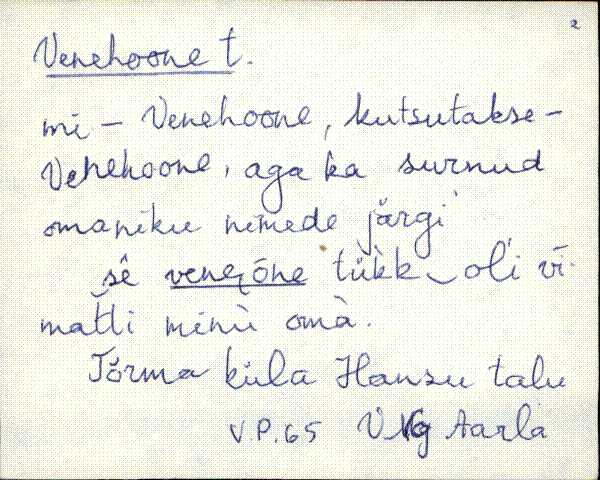 2
Venehoone t.
mi - Venehoone, kutsutakse -
Venehoone, aga ka surnud
omaniku nimede järgi
sê venezōne tükk oli vī-
matti minù omà.
Tõrma küla Hansu talu
V.P. 65 Aarla